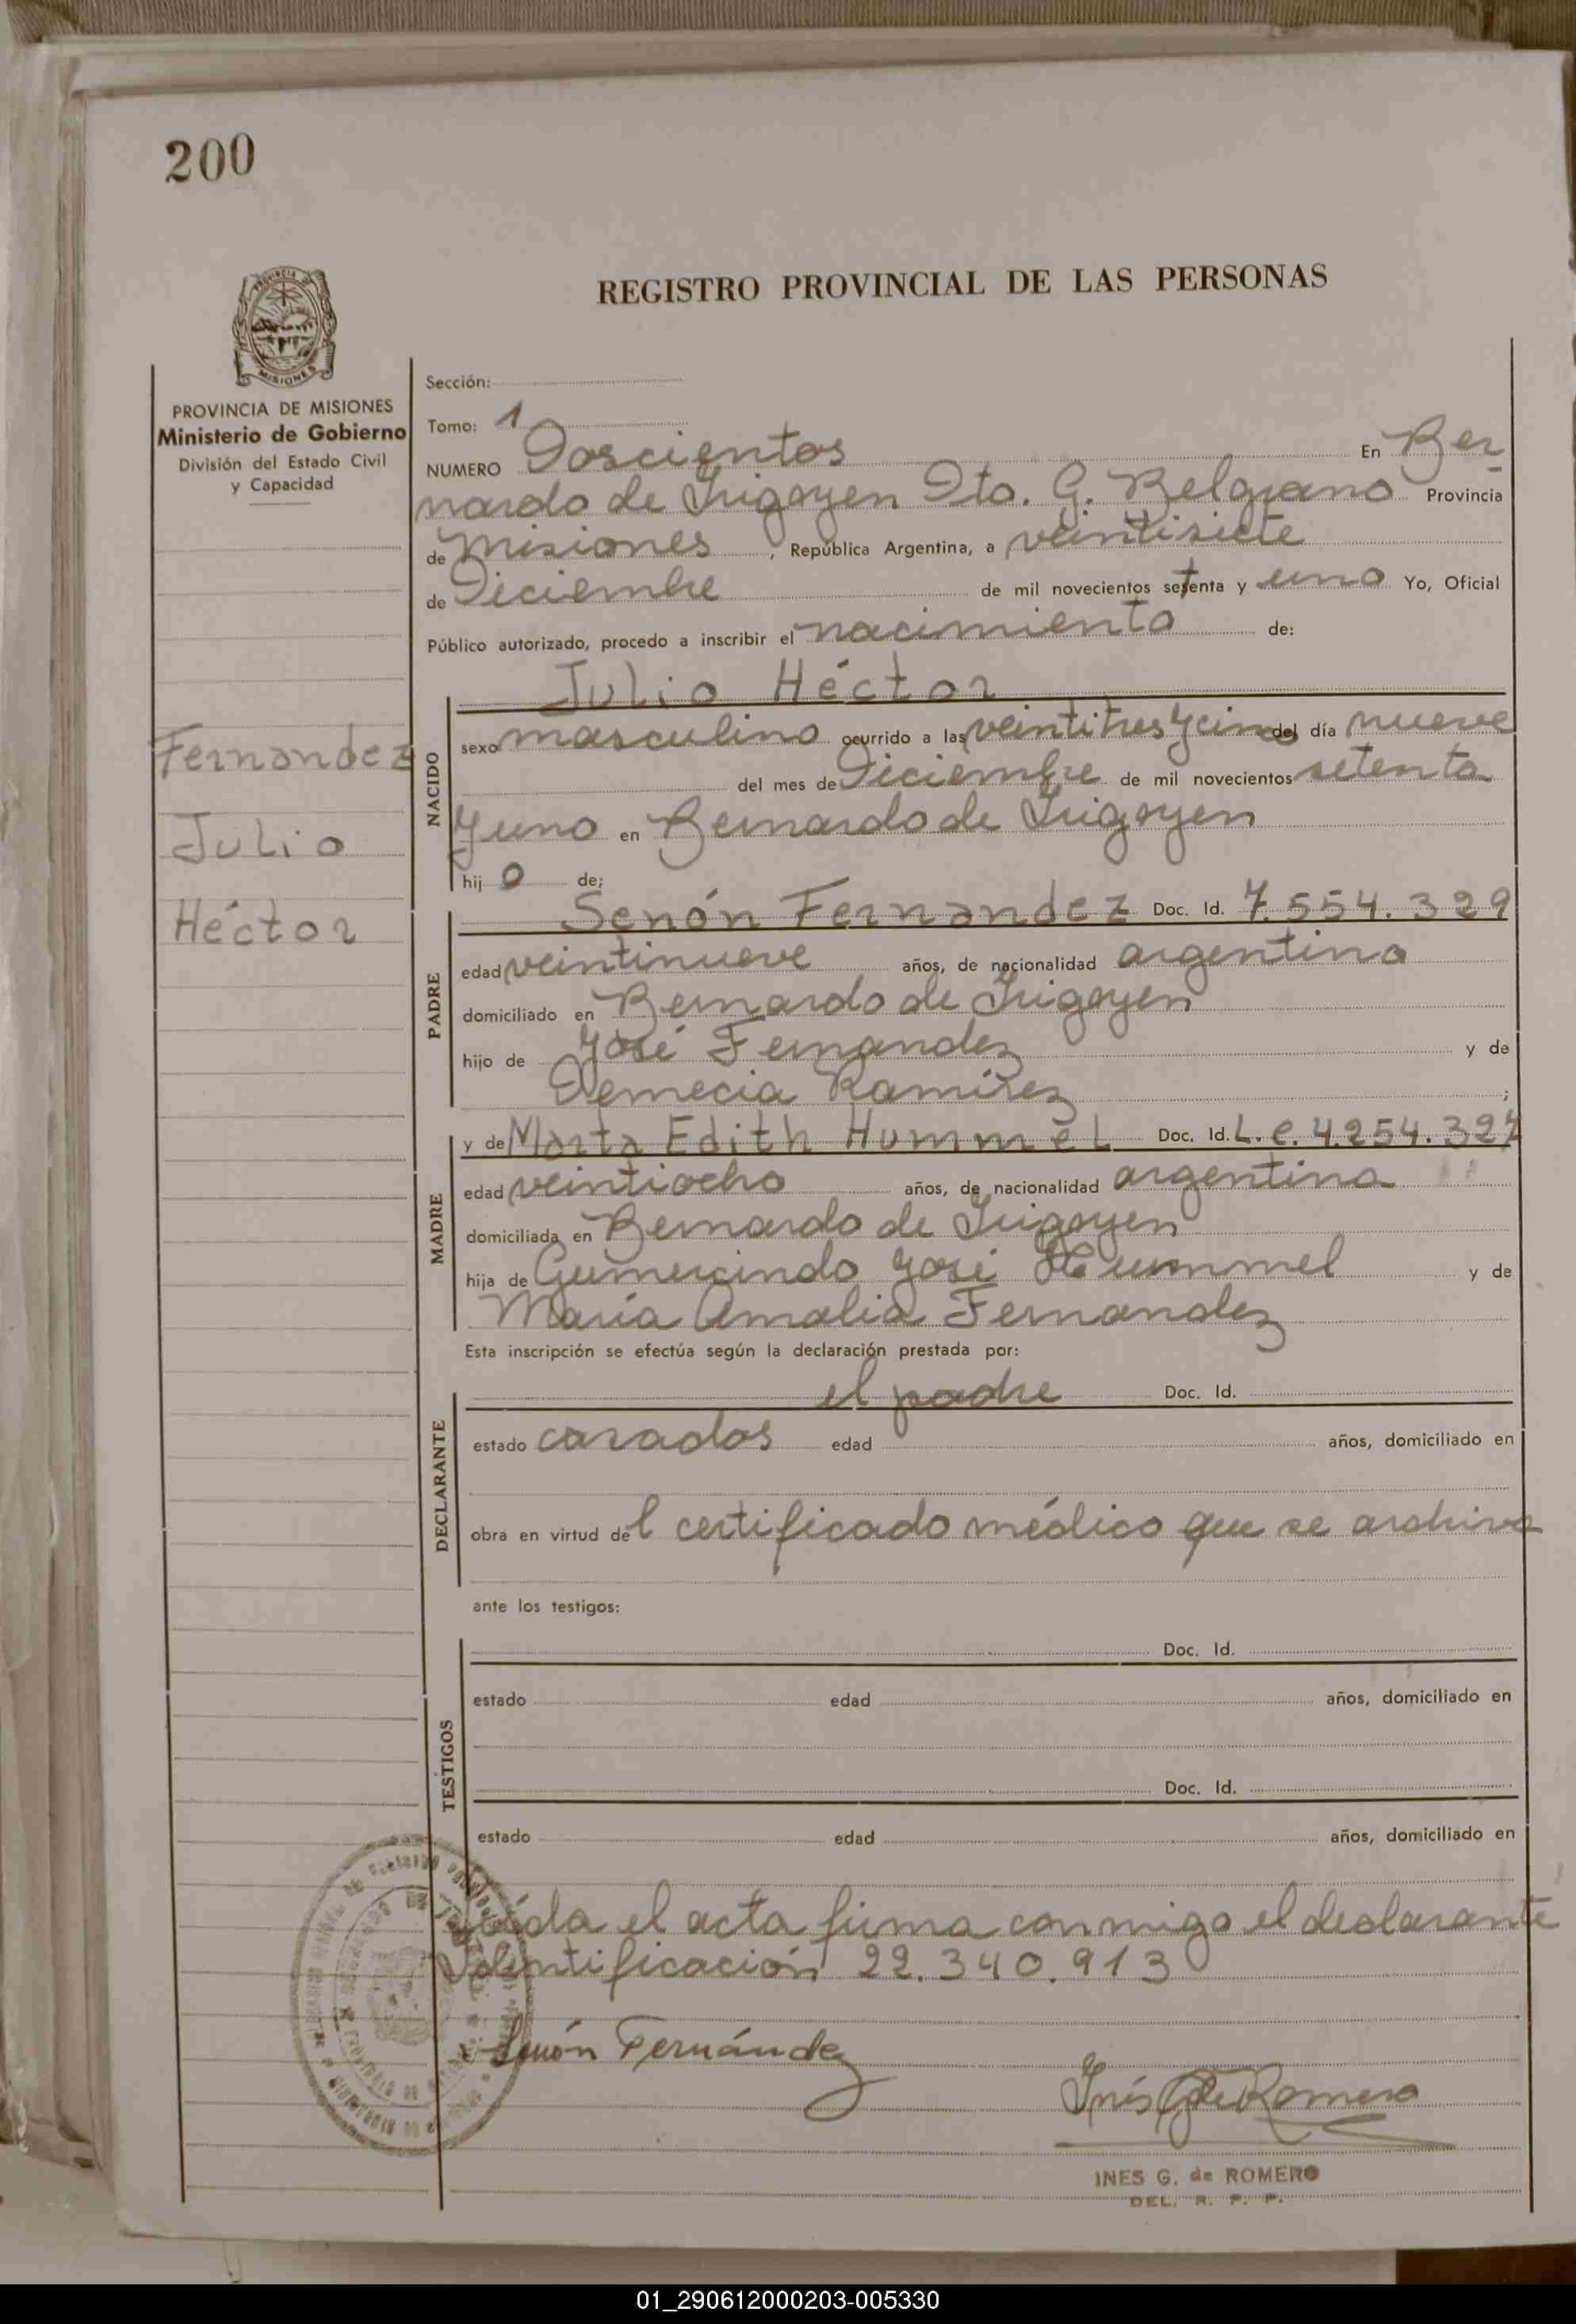 200
REGISTRO PROVINCIAL DE LAS PERSONAS
PROVINCIA DE MISIONES
Ministerio de Gobierno
División del Estado Civil
y Capacidad
Sección:
Tomo: 1
NUMERO Doscientos En Ber-
nardo de Irigoyen Dto. G. Belgrano Provincia
de Misiones, República Argentina, a veintisiete
de Diciembre de mil novecientos setenta y uno Yo, Oficial
Público autorizado, procedo a inscribir el nacimiento de:
Julio Héctor
Fernandez
Julio
Héctor
NACIDO
sexo masculino ocurrido a las veintitres y cinco del día nueve
del mes de Diciembre de mil novecientos setenta
y uno en Bernardo de Irigoyen
hijo de:
PADRE
Senón Fernandez Doc. Id. 7.554.329
edad veintinueve años, de nacionalidad argentina
domiciliado en Bernardo de Irigoyen
hijo de José Fernandez y de
Ramírez;
MADRE
y de Marta Edith Hummel Doc. Id. L.C. 4.254.327
edad veintiocho años, de nacionalidad argentina
domiciliada en Bernardo de Irigoyen
hija de Gumercindo José Hummel y de
María Amalia Fernandez
Esta inscripción se efectúa según la declaración prestada por:
DECLARANTE
el padre Doc. Id.
estado casados edad años, domiciliado en
obra en virtud del certificado médico que se archiva
ante los testigos:
TESTIGOS
Doc. Id.
estado edad años, domiciliado en
Doc. Id.
estado edad años, domiciliado en
Leída el acta firma conmigo el declarante
Identificación 22.340.913
Senón Fernández
Inés G de Romero
INES G. de ROMERO
DEL. R. P. P.
01_290612000203-005330